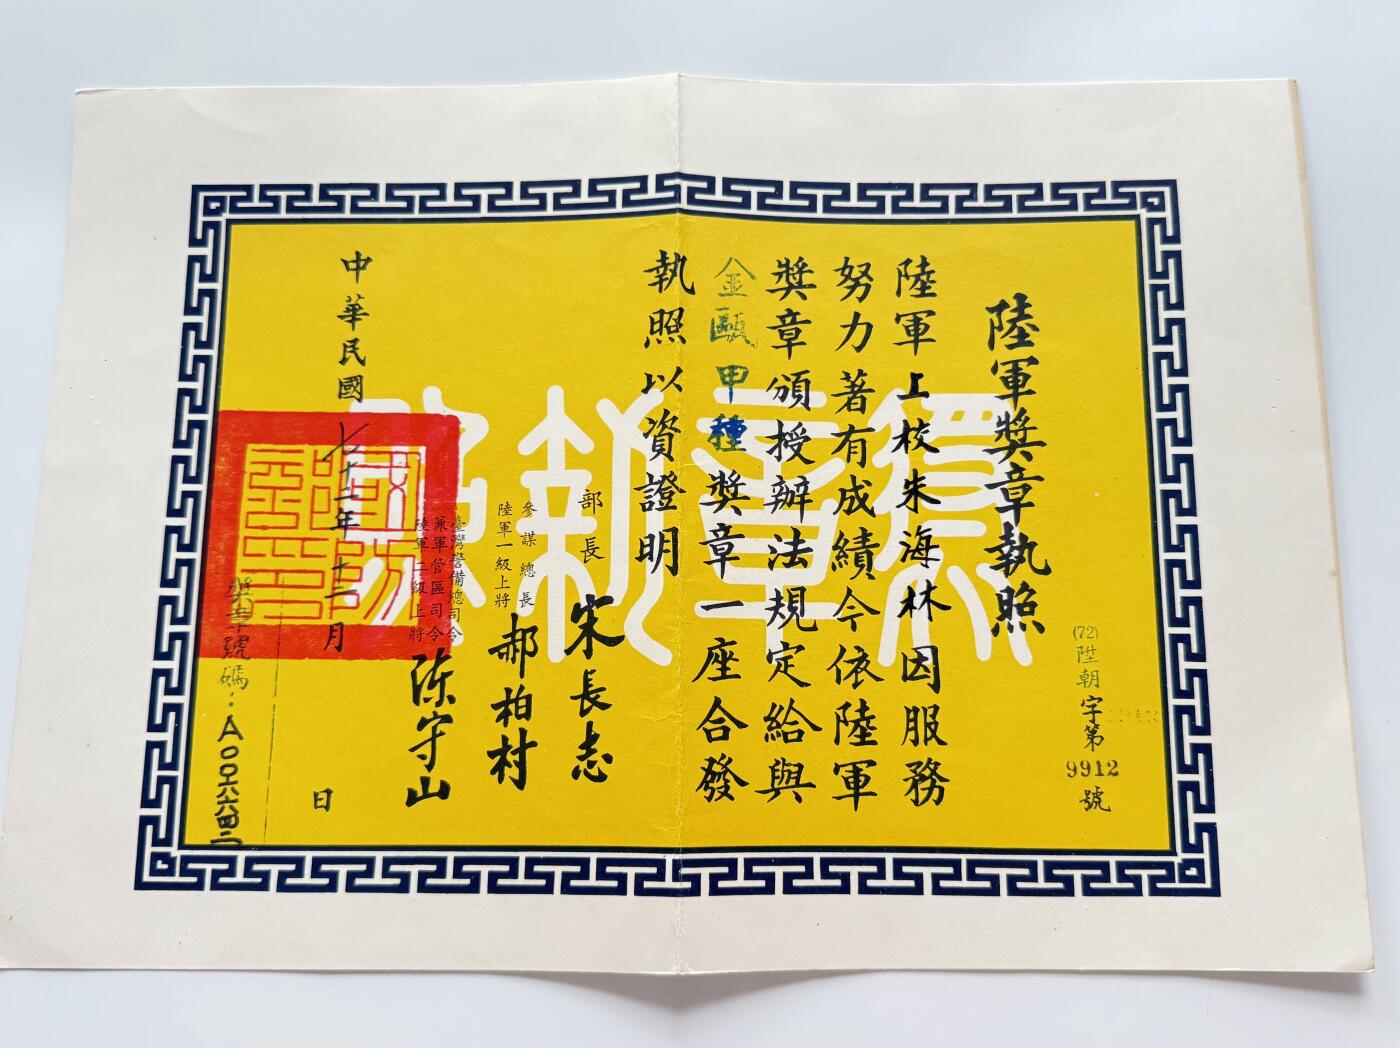 (72)陞朝字第9912號
陸軍獎章執照
陸軍上校朱海林因服務
努力著有成績今依陸軍
獎章頒授辦法規定給與
金甌甲種獎章一座合發
執照以資證明
部長 宋長志
參謀總長
陸軍一級上將 郝柏村
臺灣警備總司令
兼軍管區司令
陸軍二級上將 陳守山
中華民國七十二年十二月 日
獎章號碼：A00六六四二